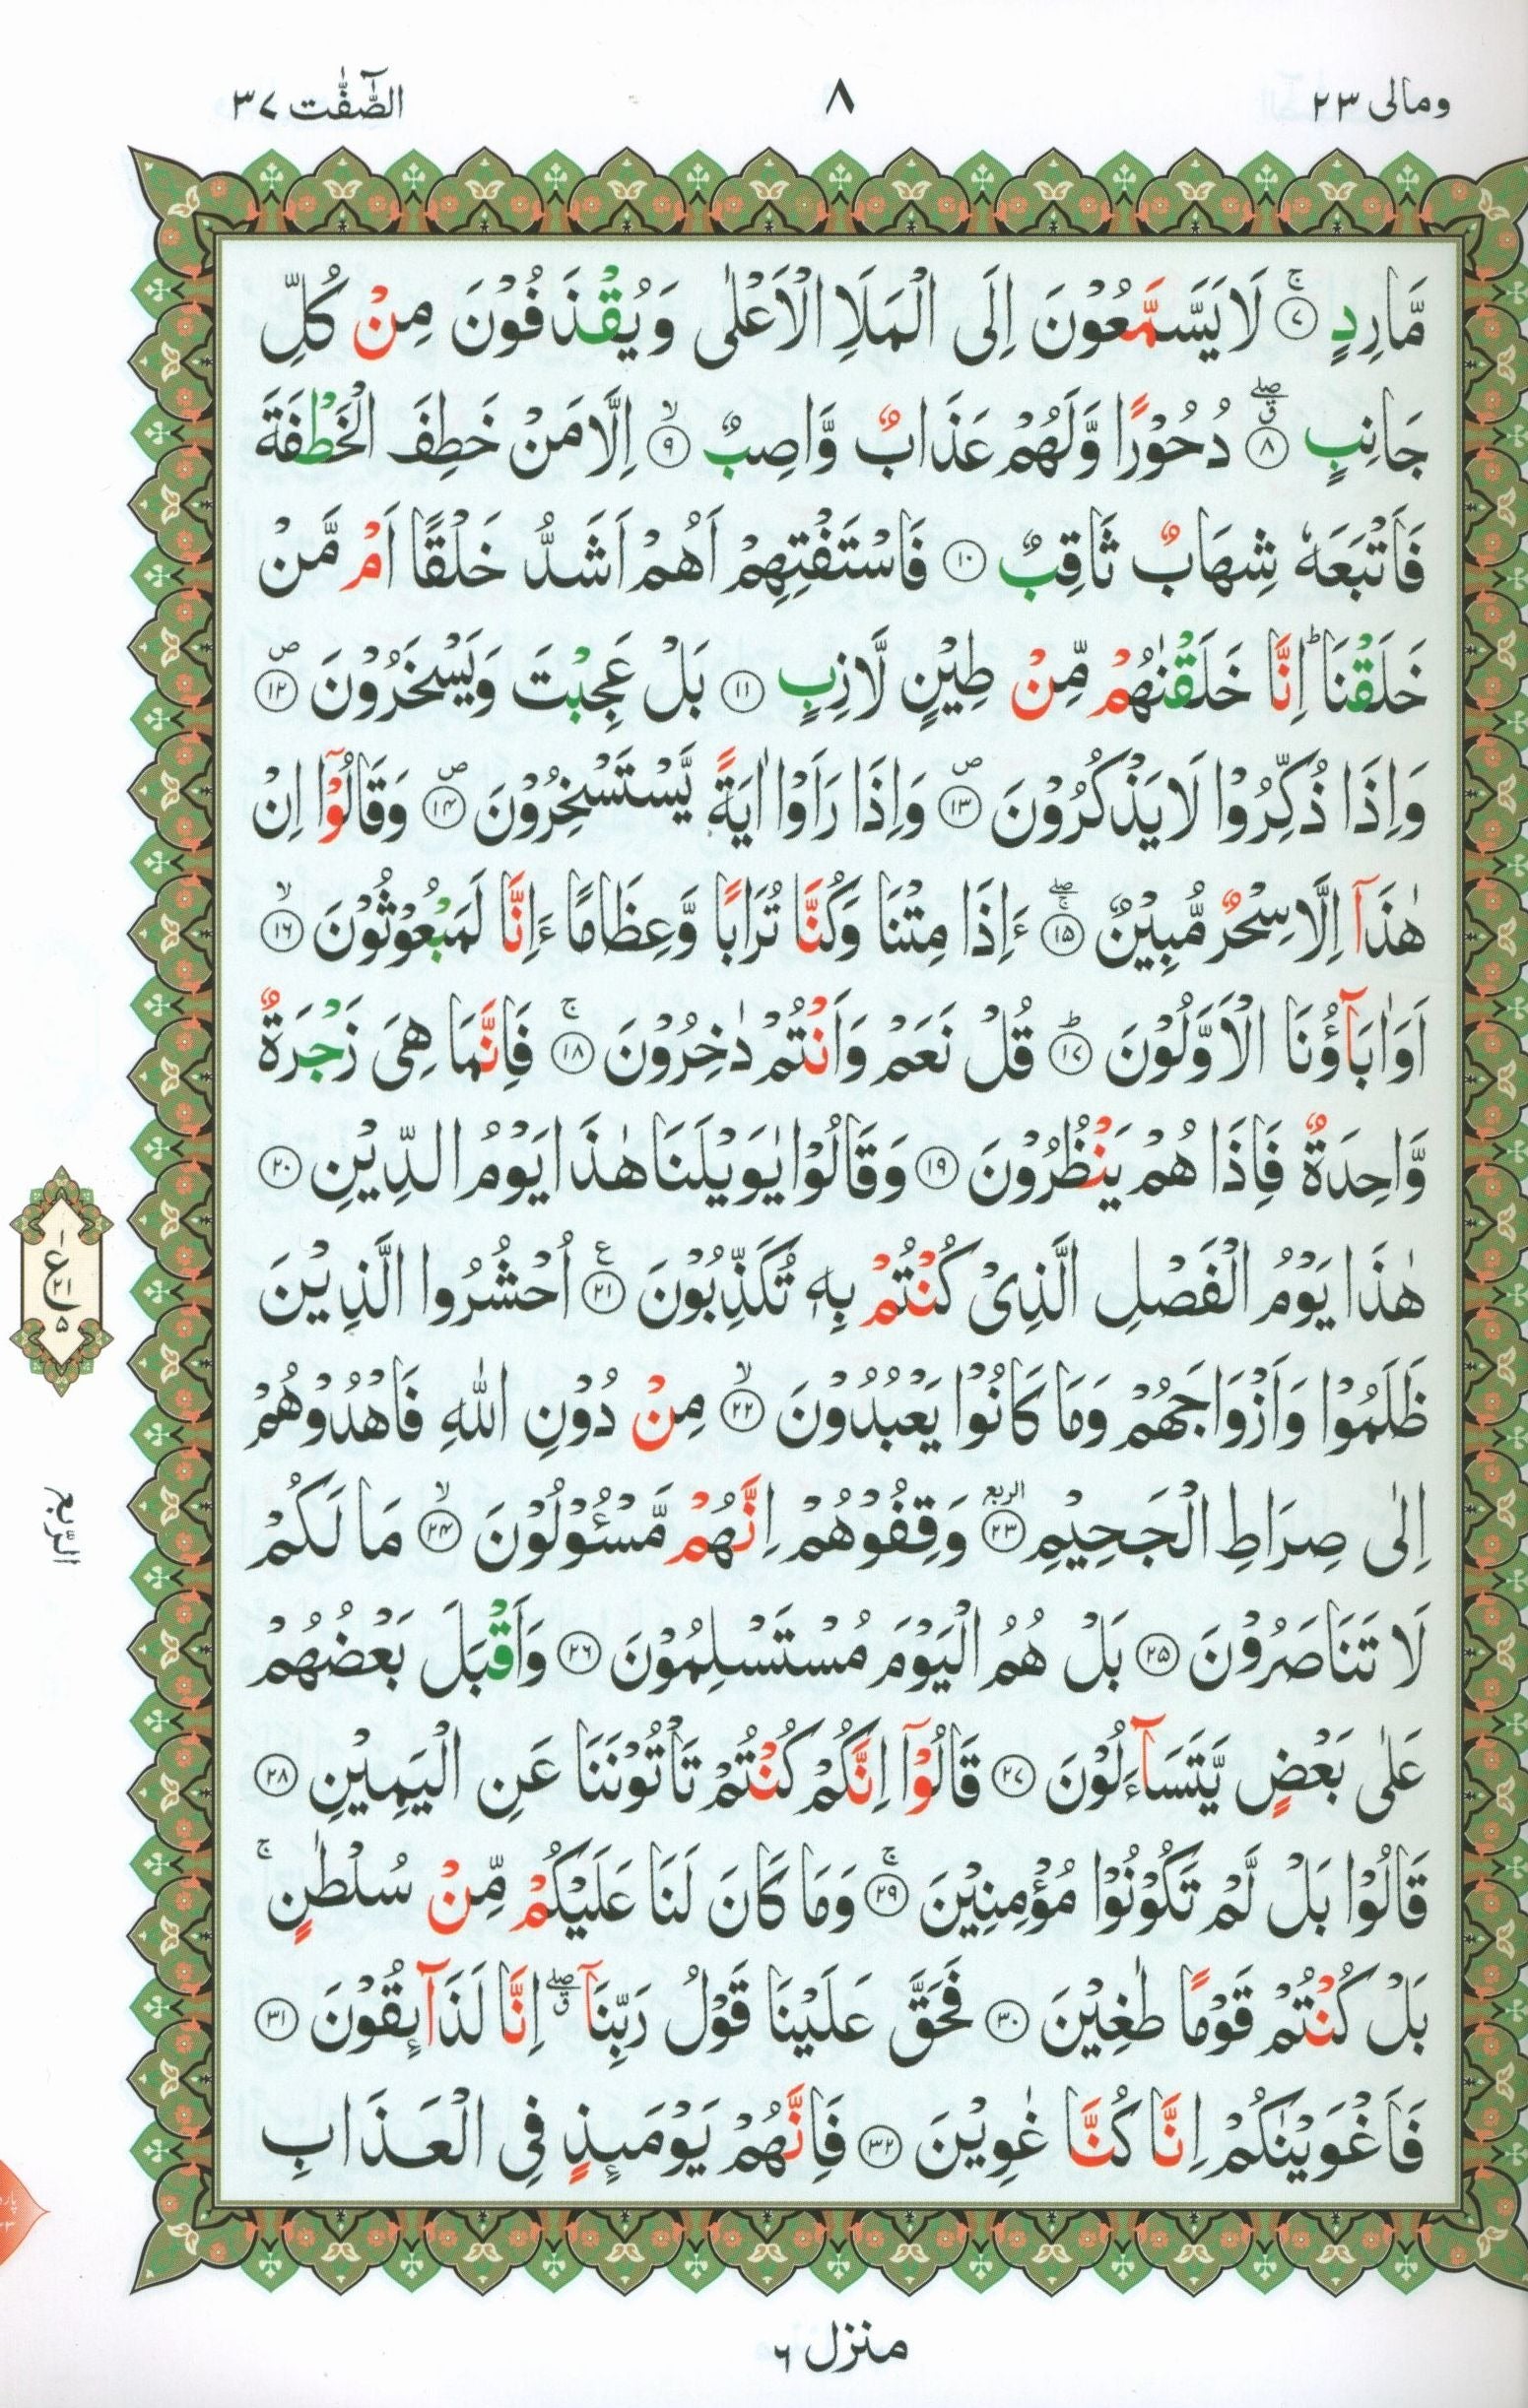 ومالى ٢٣
٨
الصّٰٓفّٰت ٣٧
مَّارِدٍ ۚ‏﴿۷﴾ لَا يَسَّمَّعُوْنَ اِلَى الْمَلَاِ الْاَعْلٰى وَيُقْذَفُوْنَ مِنْ كُلِّ
جَانِبٍ ۖۗ‏﴿۸﴾ دُحُوْرًا وَّلَهُمْ عَذَابٌ وَّاصِبٌ ۙ‏﴿۹﴾ اِلَّا مَنْ خَطِفَ الْخَطْفَةَ
فَاَتْبَعَهٗ شِهَابٌ ثَاقِبٌ ﴿۱۰﴾ فَاسْتَفْتِهِمْ اَهُمْ اَشَدُّ خَلْقًا اَمْ مَّنْ
خَلَقْنَا ؕ اِنَّا خَلَقْنٰهُمْ مِّنْ طِيْنٍ لَّازِبٍ ﴿۱۱﴾ بَلْ عَجِبْتَ وَيَسْخَرُوْنَ ۪‏﴿۱۲﴾
وَاِذَا ذُكِّرُوْا لَا يَذْكُرُوْنَ ۪‏﴿۱۳﴾ وَاِذَا رَاَوْا اٰيَةً يَّسْتَسْخِرُوْنَ ۪‏﴿۱۴﴾ وَقَالُوْۤا اِنْ
هٰذَاۤ اِلَّا سِحْرٌ مُّبِيْنٌ ۖۚ‏﴿۱۵﴾ ءَاِذَا مِتْنَا وَكُنَّا تُرَابًا وَّعِظَامًا ءَاِنَّا لَمَبْعُوْثُوْنَ ۙ‏﴿۱۶﴾
اَوَاٰبَآؤُنَا الْاَوَّلُوْنَ ؕ‏﴿۱۷﴾ قُلْ نَعَمْ وَاَنْتُمْ دٰخِرُوْنَ ۚ‏﴿۱۸﴾ فَاِنَّمَا هِىَ زَجْرَةٌ
وَّاحِدَةٌ فَاِذَا هُمْ يَنْظُرُوْنَ ﴿۱۹﴾ وَقَالُوْا يٰوَيْلَنَا هٰذَا يَوْمُ الدِّيْنِ ﴿۲۰﴾
هٰذَا يَوْمُ الْفَصْلِ الَّذِىْ كُنْتُمْ بِهٖ تُكَذِّبُوْنَ ﴿۲۱﴾ ع اُحْشُرُوا الَّذِيْنَ
ظَلَمُوْا وَاَزْوَاجَهُمْ وَمَا كَانُوْا يَعْبُدُوْنَ ۙ‏﴿۲۲﴾ مِنْ دُوْنِ اللّٰهِ فَاهْدُوْهُمْ
اِلٰى صِرَاطِ الْجَحِيْمِ ﴿۲۳﴾ الربع وَقِفُوْهُمْ اِنَّهُمْ مَّسْـُٔوْلُوْنَ ۙ‏﴿۲۴﴾ مَا لَكُمْ
لَا تَنَاصَرُوْنَ ﴿۲۵﴾ بَلْ هُمُ الْيَوْمَ مُسْتَسْلِمُوْنَ ﴿۲۶﴾ وَاَقْبَلَ بَعْضُهُمْ
عَلٰى بَعْضٍ يَّتَسَآءَلُوْنَ ﴿۲۷﴾ قَالُوْۤا اِنَّكُمْ كُنْتُمْ تَاْتُوْنَنَا عَنِ الْيَمِيْنِ ﴿۲۸﴾
قَالُوْا بَلْ لَّمْ تَكُوْنُوْا مُؤْمِنِيْنَ ۚ‏﴿۲۹﴾ وَمَا كَانَ لَنَا عَلَيْكُمْ مِّنْ سُلْطٰنٍ ۚ
بَلْ كُنْتُمْ قَوْمًا طٰغِيْنَ ﴿۳۰﴾ فَحَقَّ عَلَيْنَا قَوْلُ رَبِّنَاۤ ۖۗ اِنَّا لَذَآئِقُوْنَ ﴿۳۱﴾
فَاَغْوَيْنٰكُمْ اِنَّا كُنَّا غٰوِيْنَ ﴿۳۲﴾ فَاِنَّهُمْ يَوْمَئِذٍ فِى الْعَذَابِ
١
ع
٢١
٥
الربع
منزل ٦